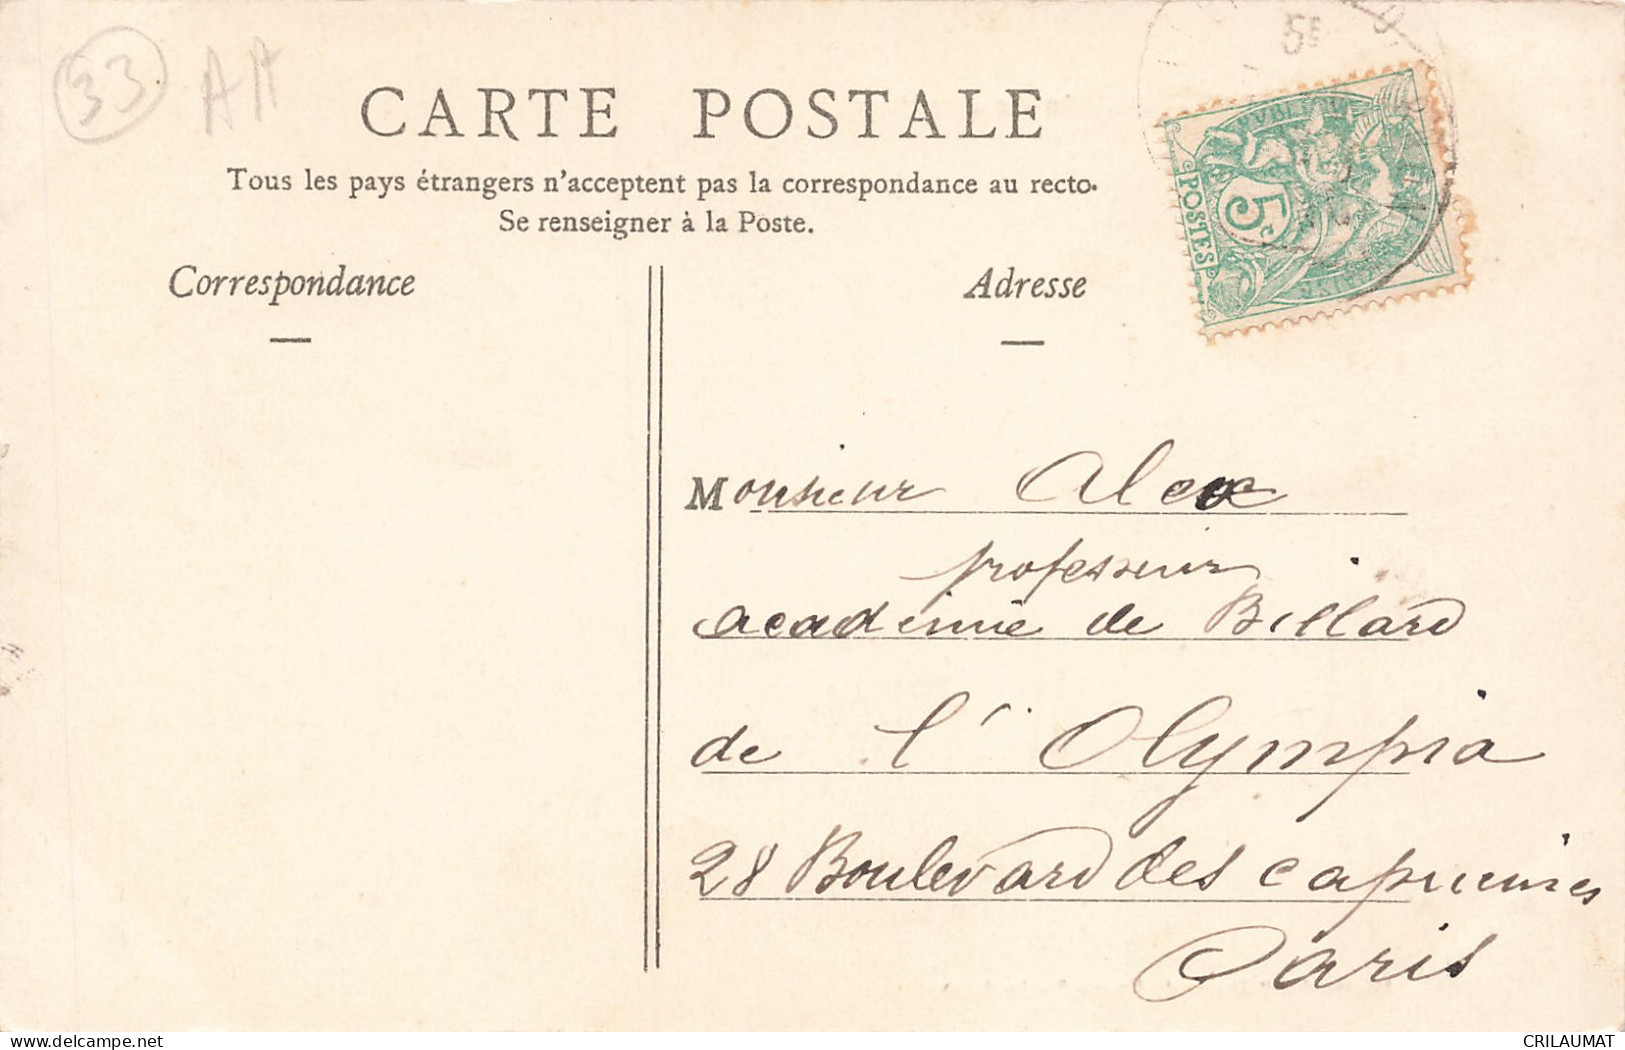 33 AA
CARTE POSTALE
Tous les pays étrangers n'acceptent pas la correspondance au recto.
Se renseigner à la Poste.
Correspondance
Adresse
5E
POSTES
5c
Monsieur Alex
professeur
academie de Billard
de l'Olympia
28 Boulevard des capucines
Paris
delcampe.net
CRILAUMAT